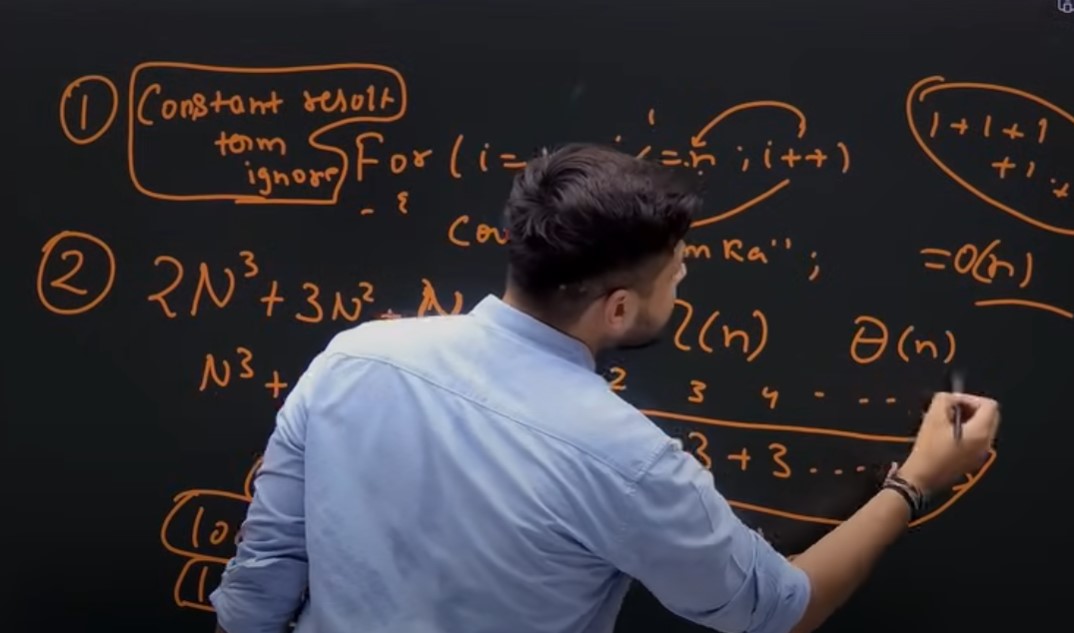 ①
Constant result
term
ignore
For (i= <=n ; i++)
{
mka" ;
1+1+1
+1 +
=O(n)
② 2N³+3N²
N³+
(n) θ(n)
2 3 4 - - - -
3+3....